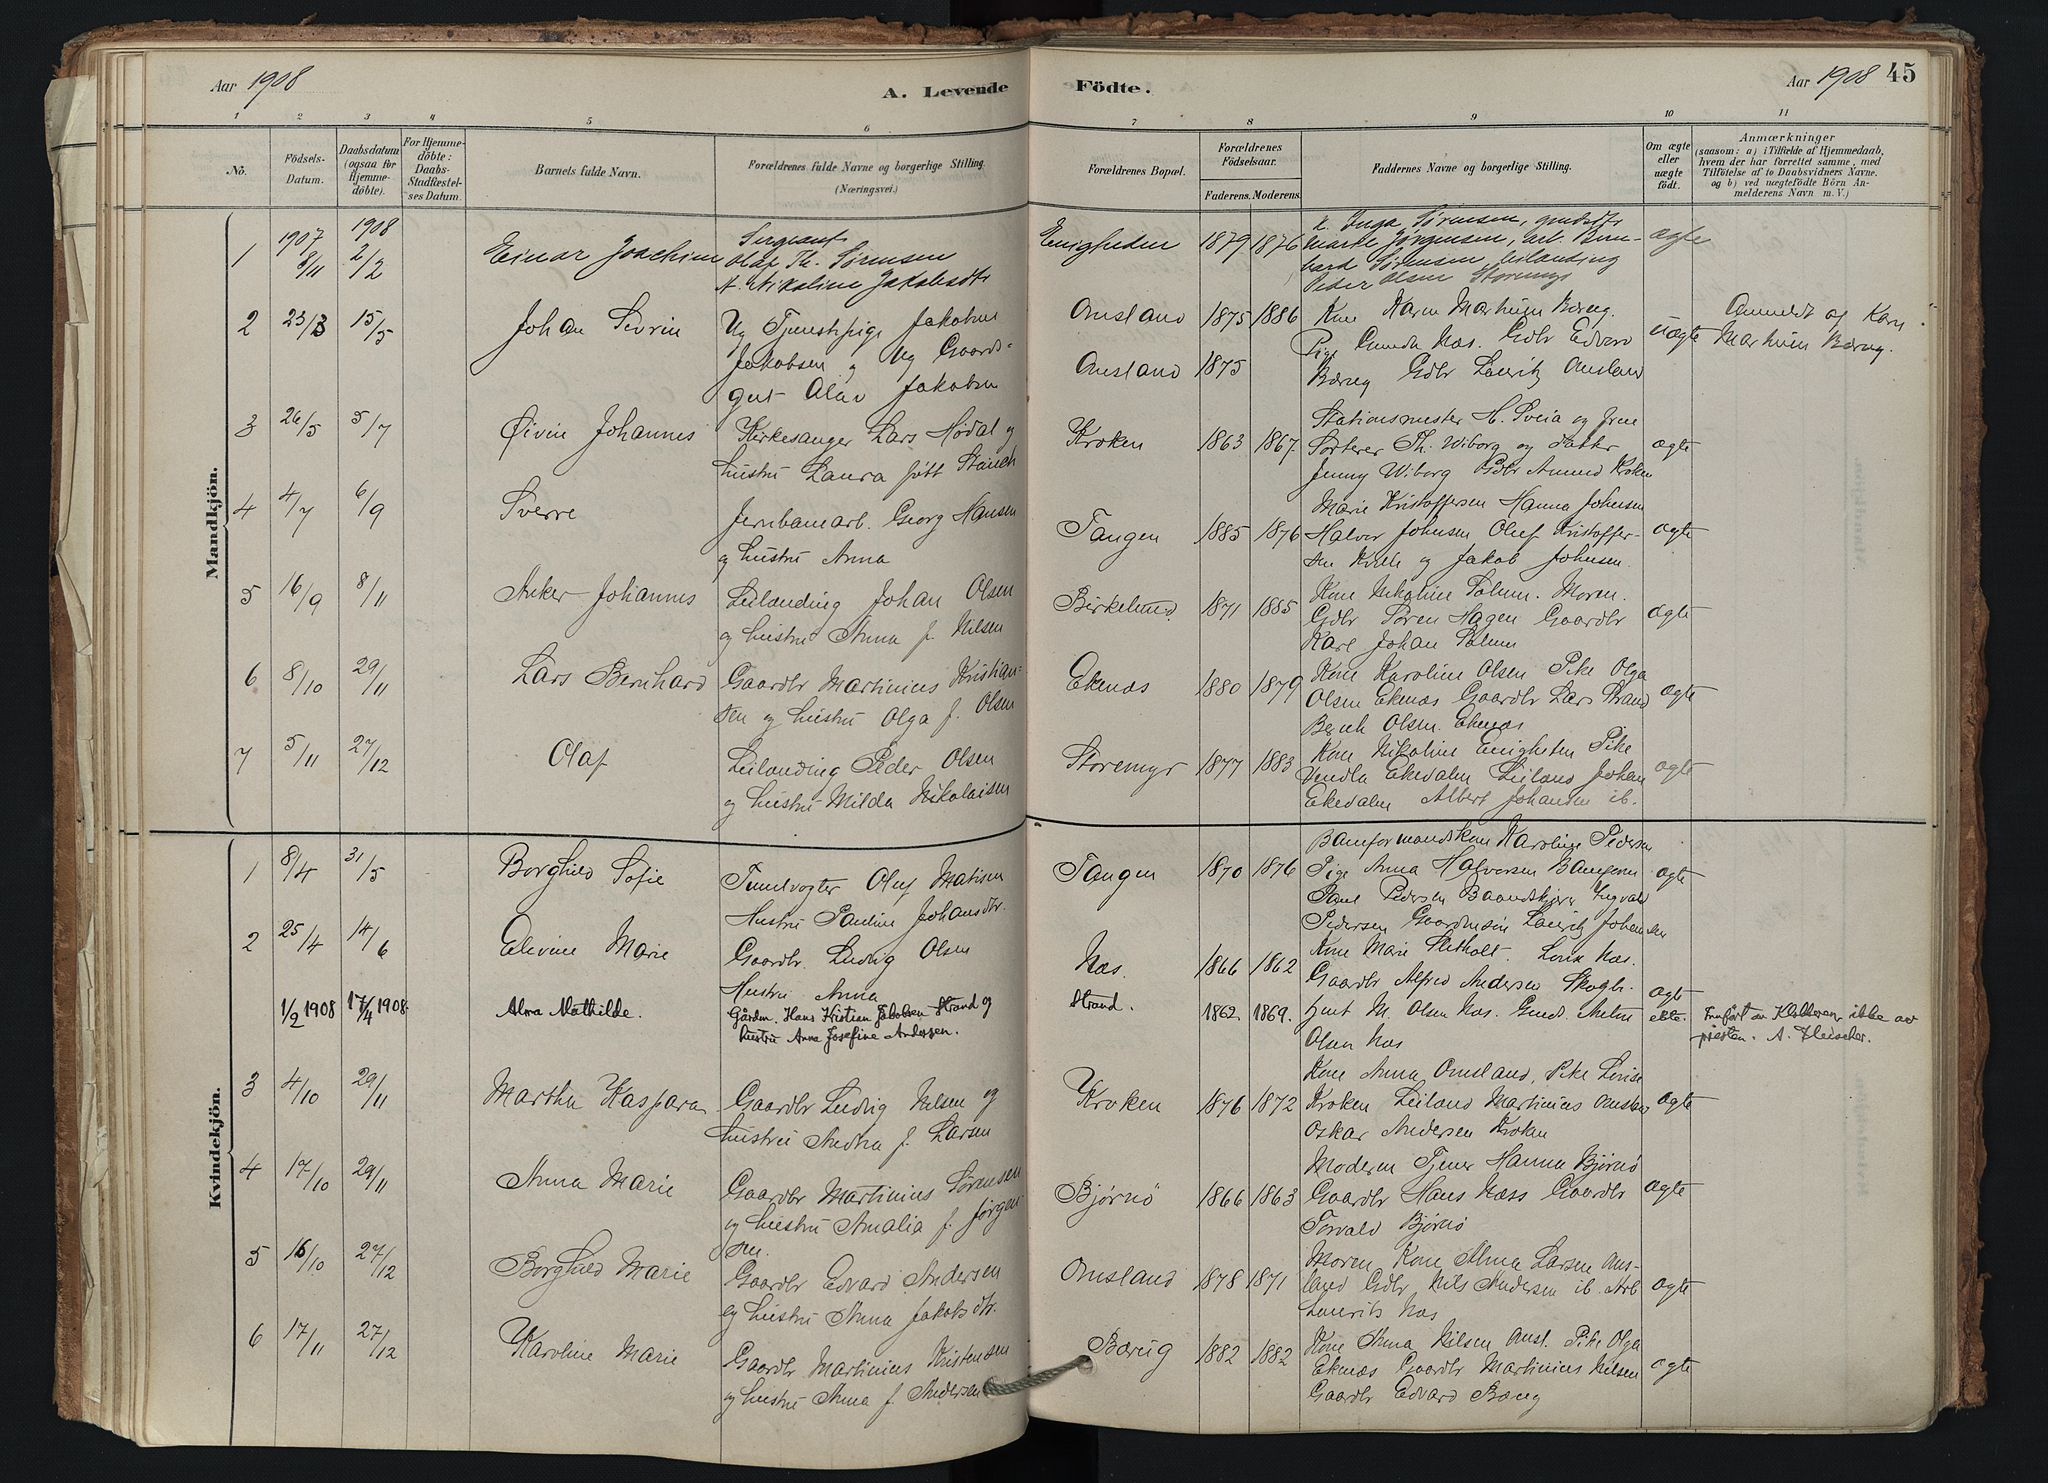 Aar 1908
A. Levende
1 2 3 4 5 6
No.
Födsels-
Datum.
Daabsdatum
(ogsaa för
Hjemme-
döbte).
For Hjemme-
döbte:
Daabs-
Stadfæstel-
ses Datum.
Barnets fulde Navn.
Forældrenes fulde Navne og borgerlige Stilling.
(Næringsvei.)
Mandkjön.
1 1907 8/11 1908 2/2 Einar Joachim Sergeant
Olaf Th. Sørensen
A. Nikoline Jakobsdtr
2 23/3 15/5 Johan Sevrin Ug Tjenestpige Jakobine
Jakobsen og Ug Gaards-
gut Olav Jakobsen
3 26/5 5/7 Øivin Johannes Kirkesanger Lars Hødal og
hustru Laura født
4 4/7 6/9 Sverre Jernbanearb. Georg Hansen
og hustru Anna
5 16/9 8/11 Anker Johannes Leilænding Johan Olsen
og hustru Anna f. Nilsen
6 8/10 29/11 Lars Bernhard Gaardbr Martinius Kristian-
sen og hustru Olga f. Olsen
7 5/11 27/12 Olaf Leilænding Peder Olsen
og hustru Milda Nikolaisen
Kvindekjön.
1 8/4 31/5 Borghild Sofie Tunelvogter Oluf Matisen
Hustru Pauline Johansdtr.
2 25/4 14/6 Elevine Marie Gaardbr. Ludvig Olsen
Hustru Anna
1/2 1908 17/4 1908. Alva Mathilde. Gårdm. Hans Kristian Jakobsen Strand og
hustru Anna Josefine Andersen.
3 4/10 29/11 Martha Kaspara Gaardbr Ludvig Nilsen og
hustru Andrea f. Larsen
4 17/10 29/11 Anna Marie Gaardbr Martinius Sørensen
og hustru Amalia f. Jørgen
sen.
5 16/10 27/12 Borghild Marie Gaardbr Edvard Andersen
og hustru Anna Jakobsdtr.
6 17/11 27/12 Karoline Marie Gaardbr Martinius Kristensen
og hustru Anna f. Andersen
Födte.
Aar 1908 45
7 8 9 10 11
Forældrenes Bopæl.
Forældrenes
Födselsaar.
Faderens. Moderens.
Faddernes Navne og borgerlige Stilling.
Om ægte
eller
uægte
födt.
Anmærkninger
(saasom: a) i Tilfælde af Hjemmedaab,
hvem der har forrettet samme, med
Tilföielse af to Daabsvidners Navne,
og b) ved uægtefödte Börn An-
melderens Navn m. V.)
Enigheden 1879 1876 K. Inga Sørensen, gmdsdtr
Marte Jørgensen, arb. Bern-
hard Sørensen, leilænding
Peder Olsen Storemyr
ægte
Omsland 1875 1886 Kone Karen Martinsen Barug.
Pige Gunda Næs. Gdbr Edvard
Omsland 1875 Barug Gdbr Lauritz Omsland
uægte Anmeldt af Karen
Martinsen Barug.
Kroken 1863 1867. Stationsmester H. Sveia og frue
Sorterer Th. Wiborg og datter
Jenny Wiborg Gdbr Amund Kroken
ægte
Tangen 1885 1876 Marie Kristoffersen Hanna Johnsen
Halvor Johnsen Oluf Kristoffer-
sen og Jakob Johnsen.
ægte
Birkelund 1871 1885 Kone Nikoline Solum. Moren.
Gdbr Søren Hagen Gaardbr
Karl Johan Solum
ægte
Ekenæs 1880 1879 Kone Karoline Olsen Pike Olga
Olsen Ekenæs Gaardbr Lars Strand
Olsen Ekenæs
ægte
Storemyr 1877 1883 Kone Nikoline Enigheten Pike
Vendla Ekedalen Leilænd Johan
Ekedalen Albert Johansen ib.
ægte
Tangen 1870 1876 Baneformandskone Karoline Pedersen
Pige Anna Halvorsen
Paul Pedersen Ingvald
Pedersen Lauritz Johansen
ægte
Næs. 1866 1862 Kone Marie Sletholt. Lovise Næs.
Gaardbr Alfred Andersen
ægte
Strand. 1862. 1869. M. Olsen Næs. Anton
Olsen Næs
ekte. Innført av Klokkeren ikke av
presten. A. Fleischer.
Kroken 1876 1872 Kone Anna Omsland, Pike Lovise
Kroken Leilænd Martinius Omsland
Oskar Andersen Kroken
ægte
Bjørnø 1866 1863 Moderen Tjener Hanna Bjørnø
Gaardbr Hans Næss Gaardbr
Torvald Bjørnø
ægte
Omsland 1878 1871 Moren Kone Alma Larsen Oms-
land Gdbr Nils Andersen ib. Arb
Laurits Næs
ægte
Barug 1882 1882 Kone Anna Nilsen Omsl. Pike Olga
Ekenæs Gaardbr Martinius Nilsen
Gaardbr Edvard Barug
ægte